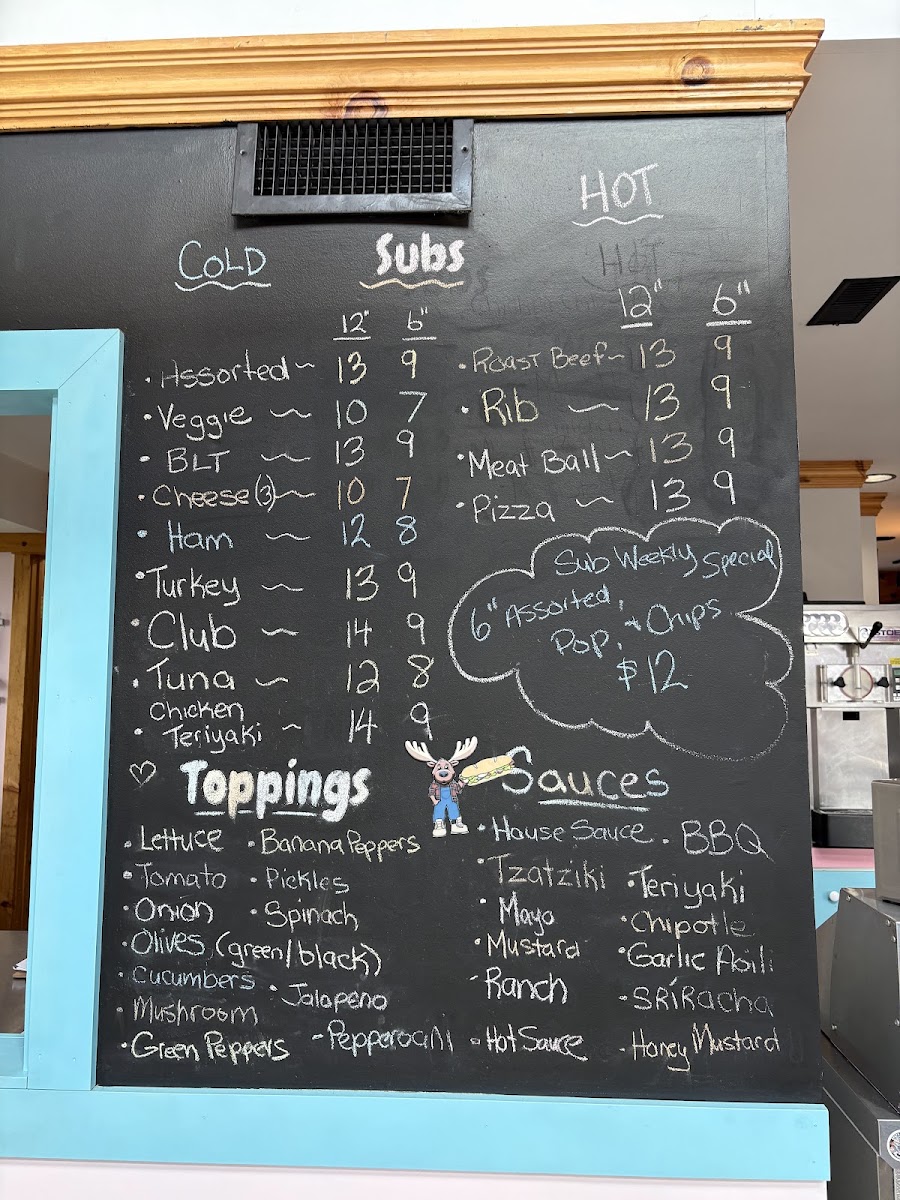 Subs
COLD
12" 6"
• Assorted ~ 13 9
• Veggie ~ 10 7
• BLT ~ 13 9
• Cheese (3) ~ 10 7
• Ham ~ 12 8
• Turkey ~ 13 9
• Club ~ 14 9
• Tuna ~ 12 8
• Chicken
Teriyaki ~ 14 9
HOT
HOT
12" 6"
• Roast Beef ~ 13 9
• Rib ~ 13 9
• Meat Ball ~ 13 9
• Pizza ~ 13 9
Sub Weekly Special
6" Assorted,
Pop, + Chips
$12
♡ Toppings
• Lettuce
• Tomato
• Onion
• Olives, (green/black)
• Cucumbers
• Mushroom
• Green Peppers
• Banana Peppers
• Pickles
• Spinach
• Jalapeno
- Pepperoani
Sauces
• House Sauce
• Tzatziki
• Mayo
• Mustard
- Ranch
• Hot Sauce
• BBQ
• Teriyaki
• Chipotle
• Garlic Aoili
• SRÍRacha
• Honey Mustard